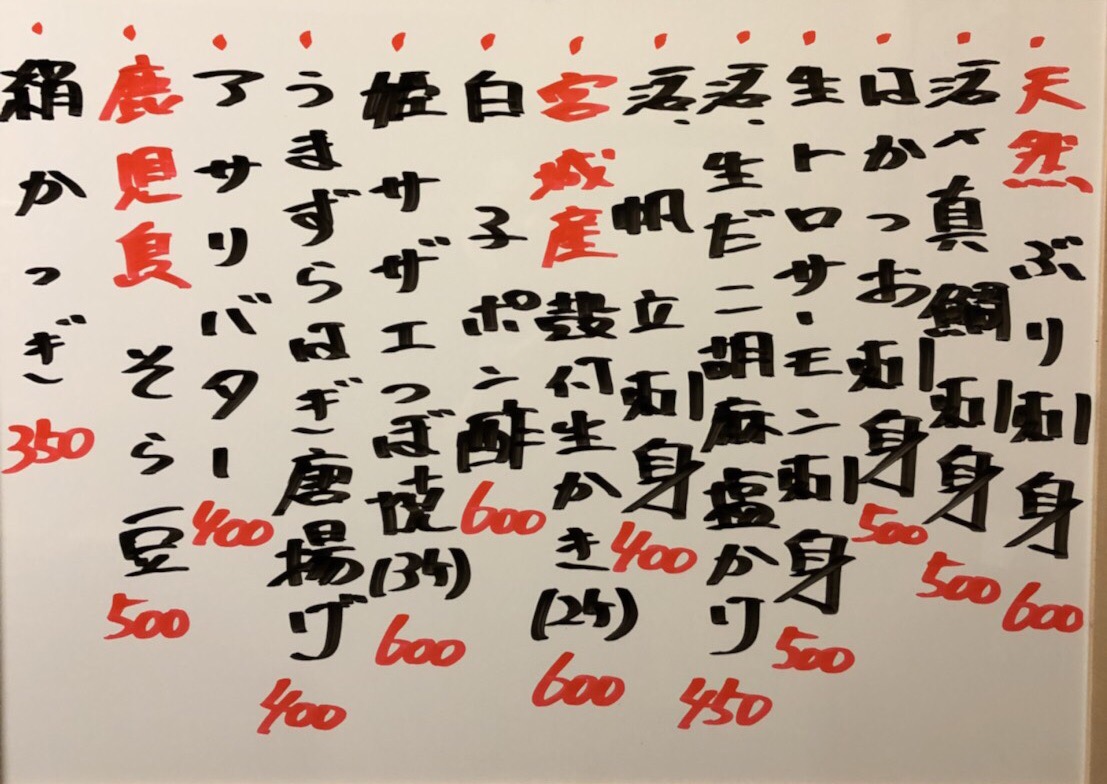 天然ぶり刺身 600
活〆真鯛刺身 500
はかつお刺身 500
生トロサーモン刺身 500
活生だこ胡麻塩かけ 450
活帆立刺身 400
宮城産殻付生かき(2ケ) 600
白子ポン酢 600
姫サザエつぼ焼(3ケ) 600
うまずらはぎ唐揚げ 400
アサリバター 400
鹿児島そら豆 500
絹かつぎ 350